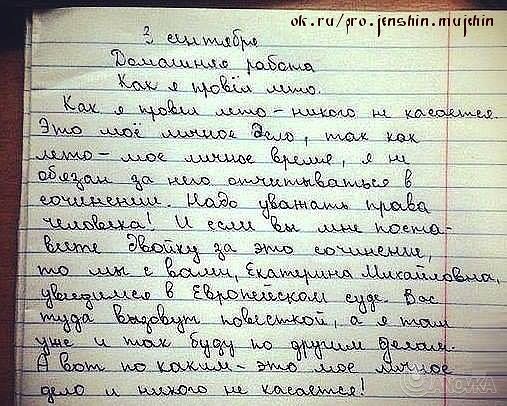 ok.ru/pro.jenshin.mujchin
3 сентября
Домашняя работа
Как я провёл лето.
Как я провёл лето – никого не касается.
Это моё личное дело, так как
лето – мое личное время, я не
обязан за него отчитываться в
сочинении. Надо уважать права
человека! И если вы мне поста-
вите двойку за это сочинение,
то мы с вами, Екатерина Михайловна,
увидимся в Европейском суде. Вас
туда вызовут повесткой, а я там
уже и так буду по другим делам.
А вот по каким – это мое личное
дело и никого не касается!